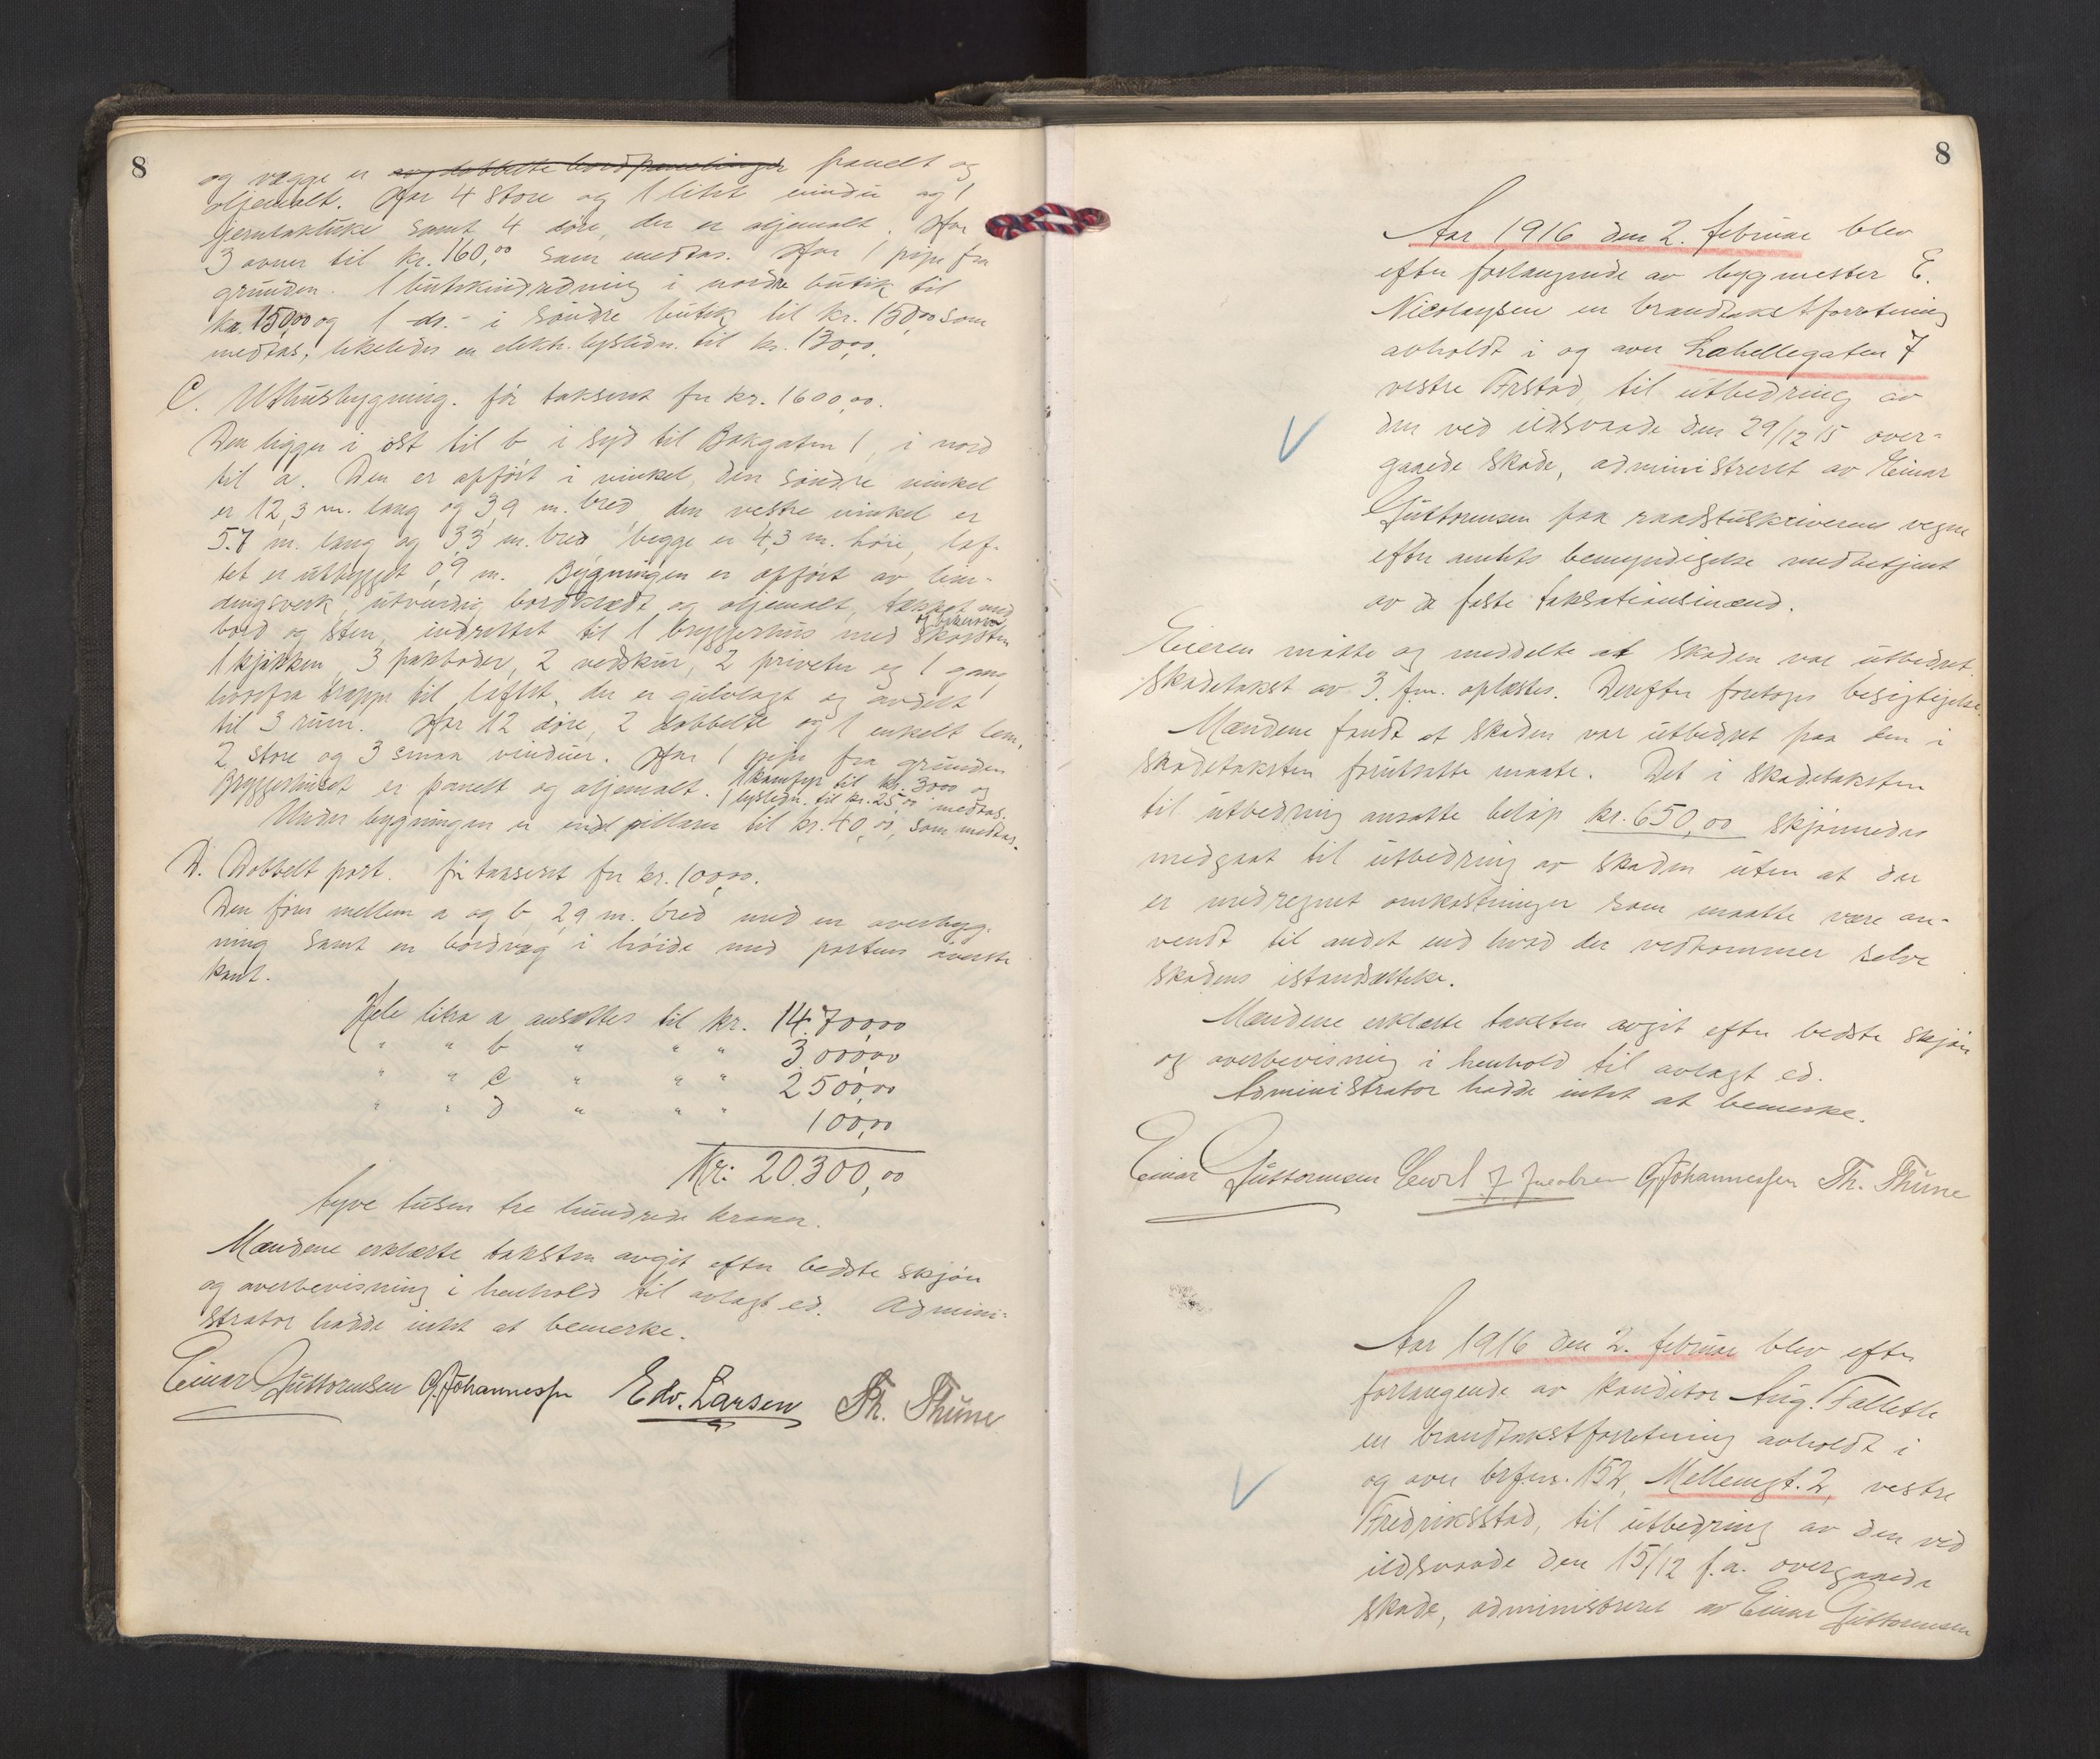 8
og vægge er og dobbelte bordpanelinger panelt og
oljemalt. Har 4 store og 1 litet vindu og 1
jerntaktuke samt 4 døre, der er oljemalt. Har
3 ovner til kr. 160,00 som medtas. Har 1 pipe fra
grunden. 1 butikindredning i nordre butik til
kr. 150,00 og 1 do.- i søndre butik til kr. 150,00 som
medtas, likeledes en elektr. lysledn. til kr. 130,00.
C. Uthusbygning. før taksert for kr. 1600,00.
Den ligger i øst til b i syd til Bakgaten 1, i nord
til a. Den er opført i vinkel, den søndre vinkel
er 12,3 m. lang og 3,9 m. bred, den vestre vinkel er
5.7 m. lang og 3,3 m. bred begge er 4,3 m. høie, lof-
tet er utbygget 0,9 m. Bygningen er opført av bin-
dingsverk, utvendig bordklædt og oljemalt, tækket med
bord og sten, indrettet til 1 bryggerhus med skorsten
1 kjøkken, 3 pakboder, 2 vedskur, 2 priveter og 1 gang
hvorfra trappe til loftet, der er gulvlagt og avdelt
til 3 rum. Har 12 døre, 2 dobbelte og 1 enkelt lem,
2 store og 3 smaa vinduer. Har 1 pipe fra grunden
Bryggerhuset er panelt og oljemalt. 1 komfyr til kr. 30,00 og
1 lysledn. til kr. 25,00 medtas.
Under bygningen er endel pillarer til kr. 40,00, som medtas.
D. Dobbelt port. før taksert for kr. 100,00.
Den fører mellem a og b, 2,9 m. bred med en overbyg-
ning samt en bordvæg i høide med portens øverste
kant.
Hele litra a ansættes til kr. 14.700,00
" " b " " " 3.000,00
" " c " " " 2500,00
" " d " " " 100,00
Kr: 20.300,00
tyve tusen tre hundrede kroner.
Mændene erklærte taksten avgit efter bedste skjøn
og overbevisning i henhold til avlagt ed. Admini-
strator hadde intet at bemerke.
Einar Guttormsen G. Johannessen Edv. Larsen Th. Thune
8
Aar 1916 den 2. februar blev
efter forlangende av bygmester E.
Nicolaysen en brandtakstforretning
avholdt i og over Lahellegaten 7
vestre Frstad, til utbedring av
den ved ildsvaade den 29/12 15 over-
gaaede skade, administreret av Einar
Guttormsen paa raadstuskriverens vegne
efter amtets bemyndigelse med betjent
av de faste taksationsmænd.
Eieren møtte og meddelte at skaden var utbedret.
Skadetakst av 3. f.m. oplæstes. Derefter foretoges besigtigelse.
Mændene fandt at skaden var utbedret paa den i
skadetaksten forutsatte maate. Det i skadetaksten
til utbedring ansatte beløp kr. 650,00 skjønnedes
medgaat til utbedring av skaden uten at der
er medregnet omkostninger som maatte være an-
vendt til andet end hvad der vedkommer selve
skadens istandsættelse.
Mændene erklærte taksten avgit efter bedste skjøn
og overbevisning i henhold til avlagt ed.
Administrator hadde intet at bemerke.
Einar Guttormsen Carl J. Jacobsen G. Johannessen Th. Thune
Aar 1916 den 2. februar blev efter
forlangende av konditor Aug. Falleth
en brandtakstforretning avholdt i
og over brf.nr. 152, Mellemgt. 2, vestre
Fredriksstad, til utbedring av den ved
ildsvaade den 15/12 f.a. overgaaede
skade, administreret av Einar Guttormsen